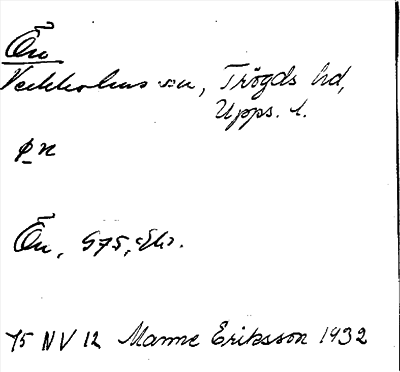 Ön
Veckholms sn, Trögds hd,
Upps. l.
pn
Ön, 975, Ek.
75 NV 12 Manne Eriksson 1932